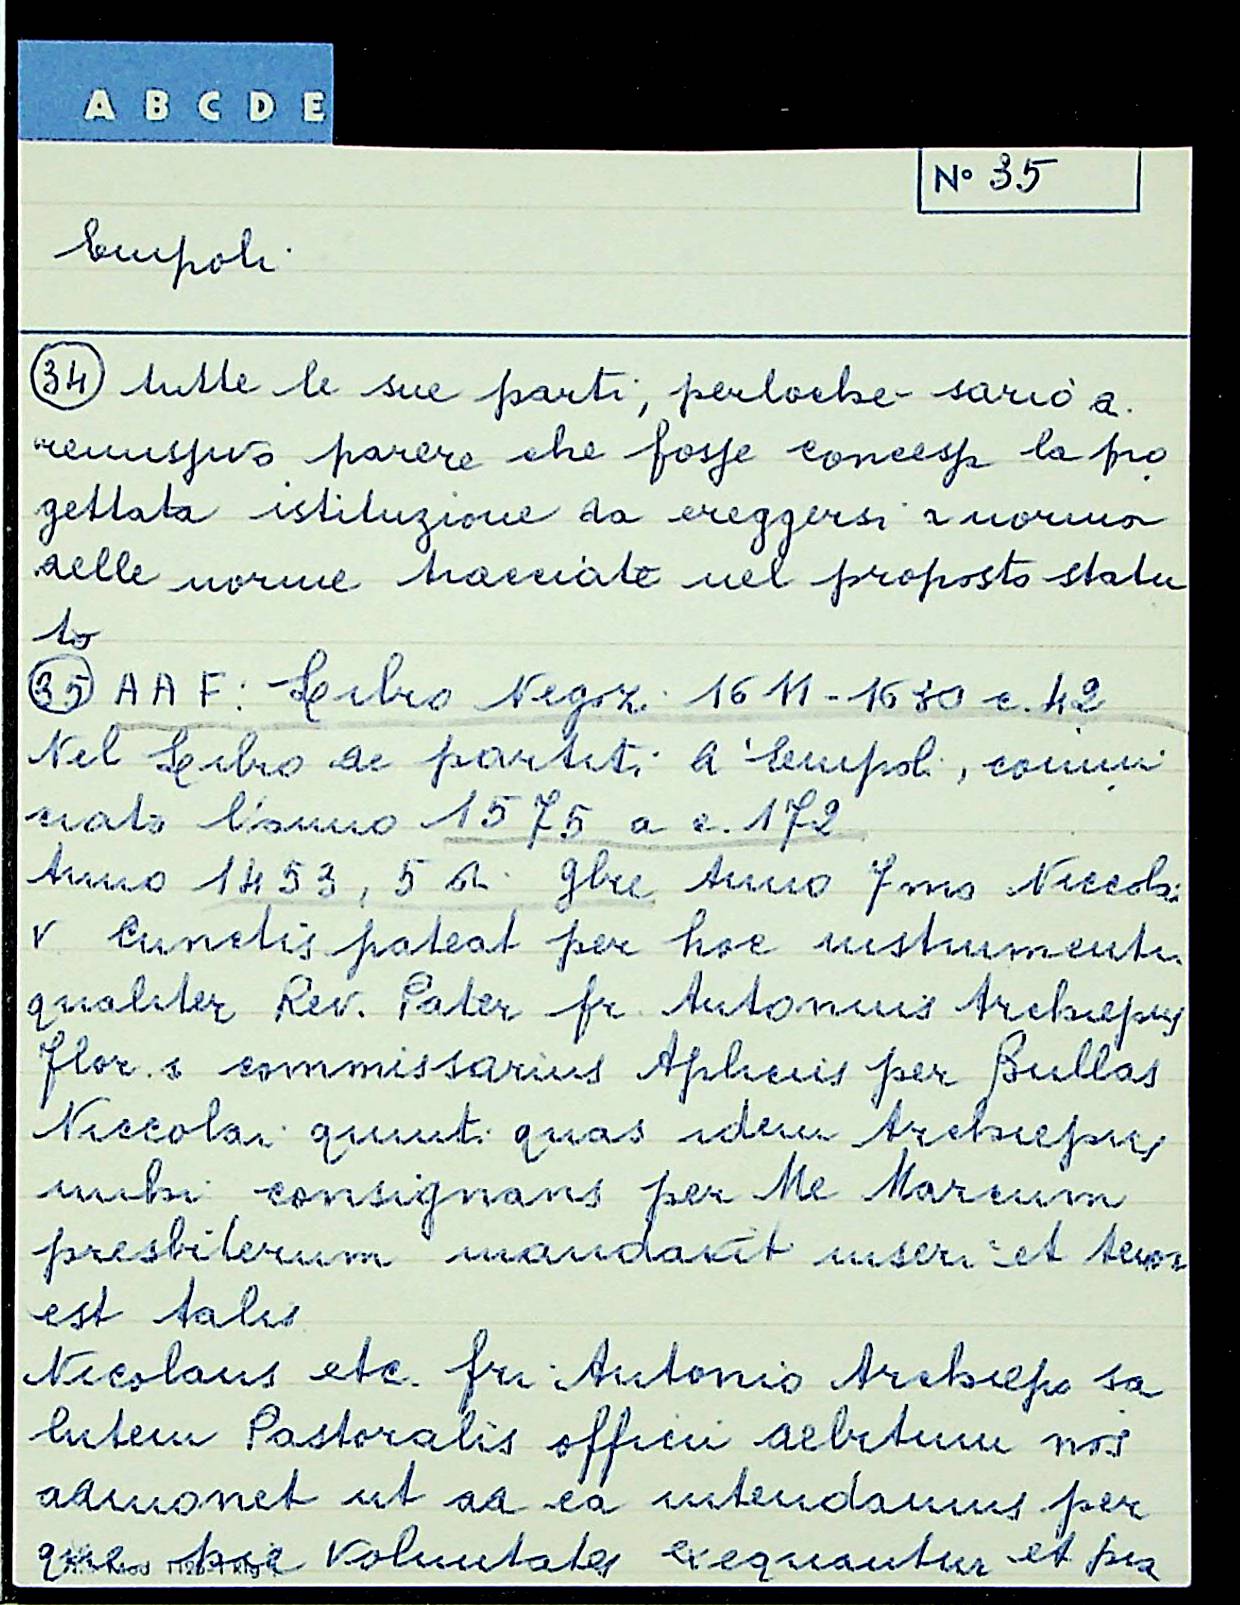 A B C D E
N° 35
Empoli
34 tutte le sue parti, perloche sariò a.
remissivo parere che fosse concessa la pro
gettata istituzione da ereggersi a norma
delle norme tracciate nel proposto statu
to
35 A A F: Libro Negozi 1611-1630 c. 42
Nel Libro de partiti d'Empoli, comin
ciato l'anno 1575 a c. 172
Anno 1453, 5 di 9bre Anno 7mo Niccolai
V Cunctis pateat per hoc instrumentu
qualiter Rev. Pater fr. Antonius Archiepus
flor. e commissarius Aplicus per Bullas
Niccolai quinti quas idem Archiepus
mihi consignans per Me Marcum
presbiterum mandavit inseri et tenor
est talis
Nicolaus etc. fri Antonio Archiepo sa
lutem Pastoralis officii debitum nos
admonet ut ad ea intendamus per
que voluntates exequantur et pia